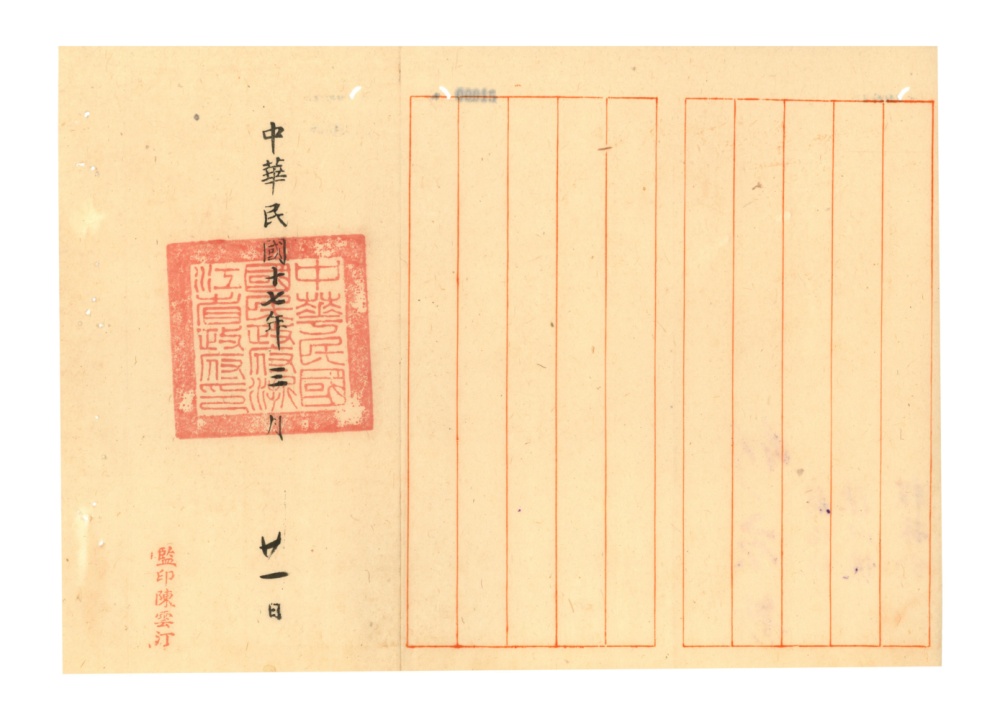 中華民國十七年三月廿一日
中華民國
國民政府浙
江省政府印
監印陳雲汀